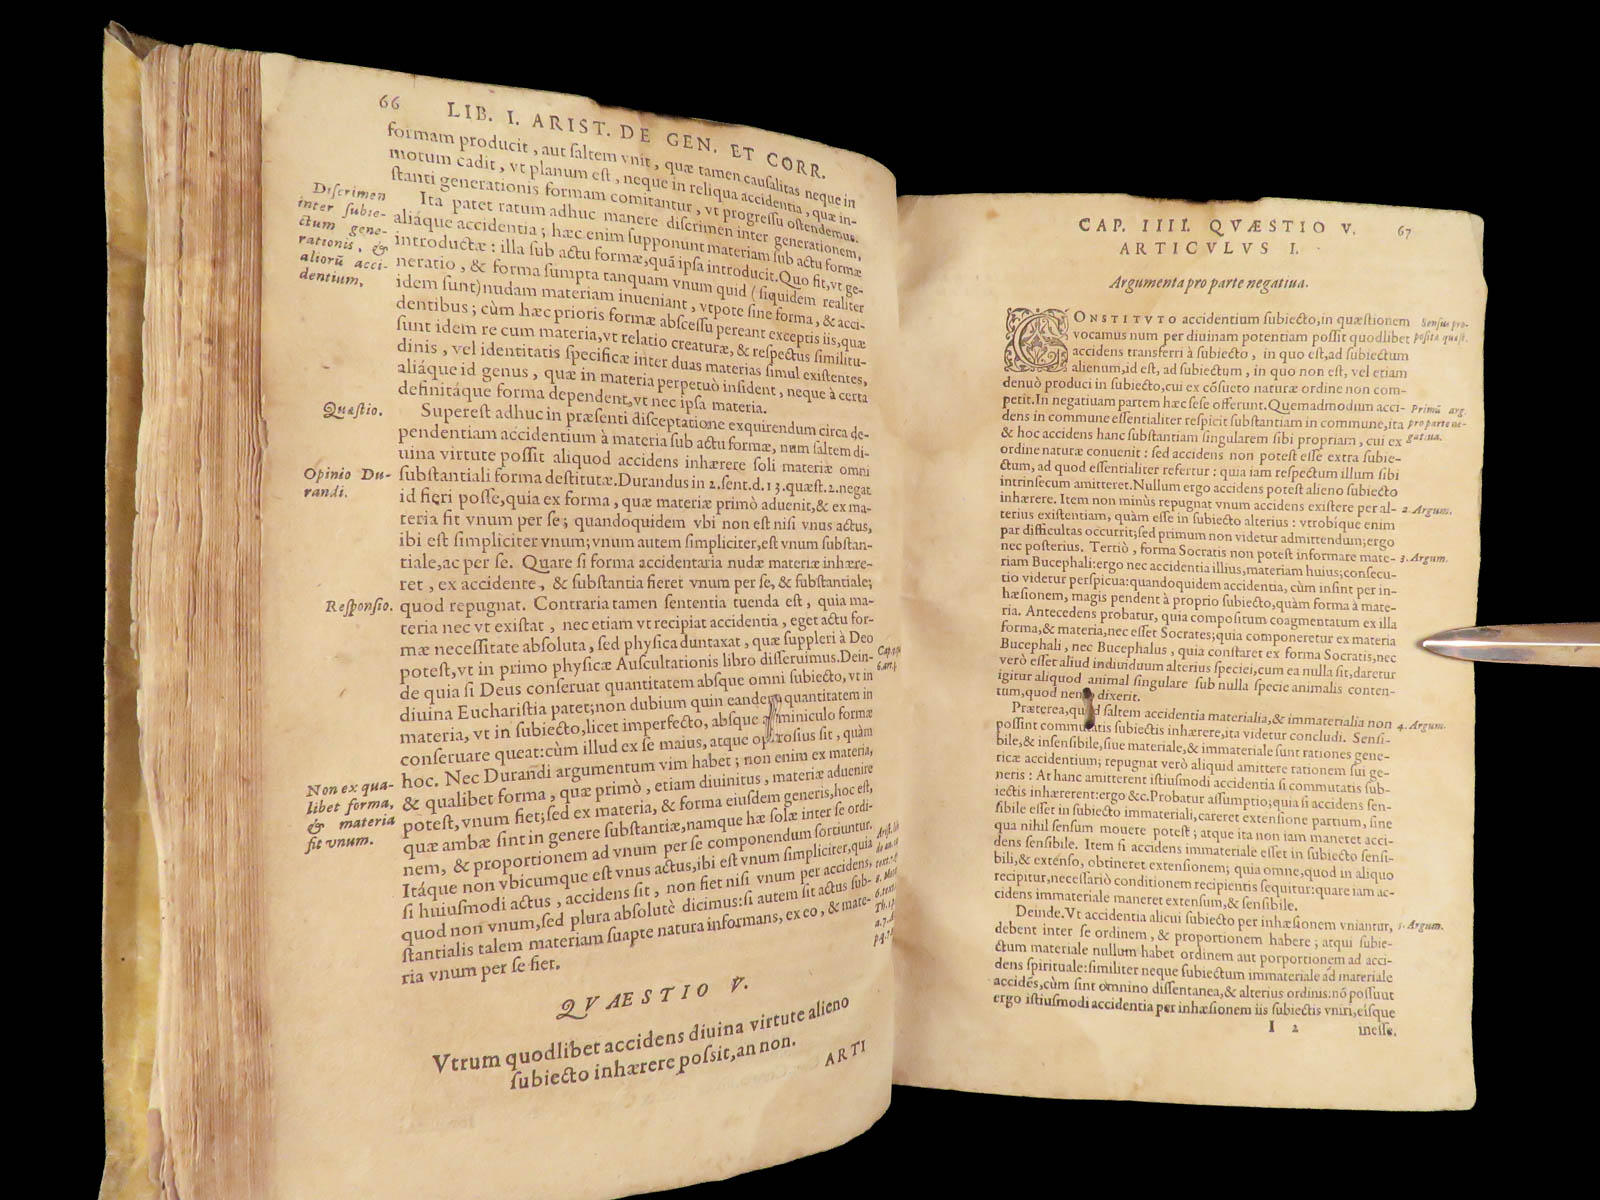 66
LIB. I. ARIST. DE GEN. ET CORR.
formam producit, aut ſaltem vnit, quæ tamen cauſalitas neque in
motum cadit, vt planum eſt, neque in reliqua accidentia, quæ in-
ſtanti generationis formam comitantur, vt progreſſu oſtendemus.
Ita patet ratum adhuc manere diſcrimen inter generationem,
aliáque accidentia; hæc enim ſupponunt materiam ſub actu formæ
introductæ: illa ſub actu formæ, quã ipſa introducit. Quo fit, vt ge-
neratio, & forma ſumpta tanquam vnum quid (ſiquidem realiter
idem ſunt) nudam materiam inueniant, vtpote ſine forma, & acci-
dentibus; cùm hæc prioris formæ abſceſſu pereant exceptis iis, quæ
ſunt idem re cum materia, vt relatio creaturæ, & reſpectus ſimilitu-
dinis, vel identitatis ſpecificæ inter duas materias ſimul exiſtentes,
aliáque id genus, quæ in materia perpetuò inſident, neque à certa
definitáque forma dependent, vt nec ipſa materia.
Diſcrimen
inter ſubie-
ctum gene-
rationis, &
aliorũ acci-
dentium.
Quæſtio.
Supereſt adhuc in præſenti diſceptatione exquirendum circa de-
pendentiam accidentium à materia ſub actu formæ, num ſaltem di-
uina virtute poſſit aliquod accidens inhærere ſoli materiæ omni
ſubſtantiali forma deſtitutæ. Durandus in 2. ſent. d. 13. quæſt. 2. negat
id fieri poſſe, quia ex forma, quæ materiæ primò aduenit, & ex ma-
teria fit vnum per ſe; quandoquidem vbi non eſt niſi vnus actus,
ibi eſt ſimpliciter vnum; vnum autem ſimpliciter, eſt vnum ſubſtan-
tiale, ac per ſe. Quare ſi forma accidentaria nudæ materiæ inhære-
ret, ex accidente, & ſubſtantia fieret vnum per ſe, & ſubſtantiale;
quod repugnat. Contraria tamen ſententia tuenda eſt, quia ma-
teria nec vt exiſtat, nec etiam vt recipiat accidentia, eget actu for-
mæ neceſſitate abſoluta, ſed phyſica duntaxat, quæ ſuppleri à Deo
poteſt, vt in primo phyſicæ Auſcultationis libro diſſeruimus. Dein-
de quia ſi Deus conſeruat quantitatem abſque omni ſubiecto, vt in
diuina Euchariſtia patet; non dubium quin eandem quantitatem in
materia, vt in ſubiecto, licet imperfecto, abſque adminiculo formæ
conſeruare queat: cùm illud ex ſe maius, atque operoſius ſit, quàm
hoc. Nec Durandi argumentum vim habet; non enim ex materia,
& qualibet forma, quæ primò, etiam diuinitus, materiæ aduenire
poteſt, vnum fiet; ſed ex materia, & forma eiuſdem generis, hoc eſt,
quæ ambæ ſint in genere ſubſtantiæ, namque hæ ſolæ inter ſe ordi-
nem, & proportionem ad vnum per ſe componendum ſortiuntur.
Itáque non vbicumque eſt vnus actus, ibi eſt vnum ſimpliciter, quia
ſi huiuſmodi actus, accidens ſit, non fiet niſi vnum per accidens,
quod non vnum, ſed plura abſolutè dicimus: ſi autem ſit actus ſub-
ſtantialis talem materiam ſuapte natura informans, ex eo, & mate-
ria vnum per ſe fiet.
Opinio Du-
randi.
Reſponſio.
Non ex qua-
libet forma,
& materia
fit vnum.
QVAESTIO V.
Vtrum quodlibet accidens diuina virtute alieno
ſubiecto inhærere poſsit, an non.
ARTI
CAP. IIII. QVÆSTIO V. 67
ARTICVLVS I.
Argumenta pro parte negatiua.
CONSTITVTO accidentium ſubiecto, in quæſtionem
vocamus num per diuinam potentiam poſſit quodlibet
accidens transferri à ſubiecto, in quo eſt, ad ſubiectum
alienum, id eſt, ad ſubiectum, in quo non eſt, vel etiam
denuò produci in ſubiecto, cui ex cõſueto naturæ ordine non com-
petit. In negatiuam partem hæc ſeſe offerunt. Quemadmodum acci-
dens in commune eſſentialiter reſpicit ſubſtantiam in commune, ita
& hoc accidens hanc ſubſtantiam ſingularem ſibi propriam, cui ex
ordine naturæ conuenit: ſed accidens non poteſt eſſe extra ſubie-
ctum, ad quod eſſentialiter refertur: quia iam reſpectum illum ſibi
intrinſecum amitteret. Nullum ergo accidens poteſt alieno ſubiecto
inhærere. Item non minùs repugnat vnum accidens exiſtere per al-
terius exiſtentiam, quàm eſſe in ſubiecto alterius: vtrobíque enim
par difficultas occurrit; ſed primum non videtur admittendum; ergo
nec poſterius. Tertiò, forma Socratis non poteſt informare mate-
riam Bucephali: ergo nec accidens illius, materiam huius; conſecu-
tio videtur perſpicua: quandoquidem accidentia, cùm inſint per in-
hæſionem, magis pendent à proprio ſubiecto, quàm forma à mate-
ria. Antecedens probatur, quia compoſitum coagmentatum ex illa
forma, & materia, nec eſſet Socrates; quia componeretur ex materia
Bucephali, nec Bucephalus, quia conſtaret ex forma Socratis, nec
verò eſſet aliud indiuiduum alterius ſpeciei, cum ea nulla ſit, daretur
igitur aliquod animal ſingulare ſub nulla ſpecie animalis conten-
tum, quod nemo dixerit.
Præterea, quòd ſaltem accidentia materialia, & immaterialia non
poſſint commutatis ſubiectis inhærere, ita videtur concludi. Senſi-
bile, & inſenſibile, ſiue materiale, & immateriale ſunt rationes gene-
ricæ accidentium; repugnat verò aliquid amittere rationem ſui ge-
neris: At hanc amitterent iſtiuſmodi accidentia ſi commutatis ſub-
iectis inhærerent: ergo &c. Probatur aſſumptio; quia ſi accidens ſen-
ſibile eſſet in ſubiecto immateriali, careret extenſione partium, ſine
qua nihil ſenſum mouere poteſt; atque ita non iam maneret acci-
dens ſenſibile. Item ſi accidens immateriale eſſet in ſubiecto ſenſi-
bili, & extenſo, obtineret extenſionem; quia omne, quod in aliquo
recipitur, neceſſariò conditionem recipientis ſequitur: quare iam ac-
cidens immateriale maneret extenſum, & ſenſibile.
Deinde. Vt accidentia alicui ſubiecto per inhæſionem vniantur,
debent inter ſe ordinem, & proportionem habere; atqui ſubie-
ctum materiale nullum habet ordinem aut porportionem ad acci-
dens ſpirituale: ſimiliter neque ſubiectum immateriale ad materiale
accidẽs, cùm ſint omnino diſſentanea, & alterius ordinis: nõ poſſunt
ergo iſtiuſmodi accidentia per inhæſionem iis ſubiectis vniri, eiſque
I 2 ineſſe.
Senſus pro-
poſitæ quæſt.
Primũ arg.
pro parte ne-
gatiua.
2. Argum.
3. Argum.
4. Argum.
5. Argum.